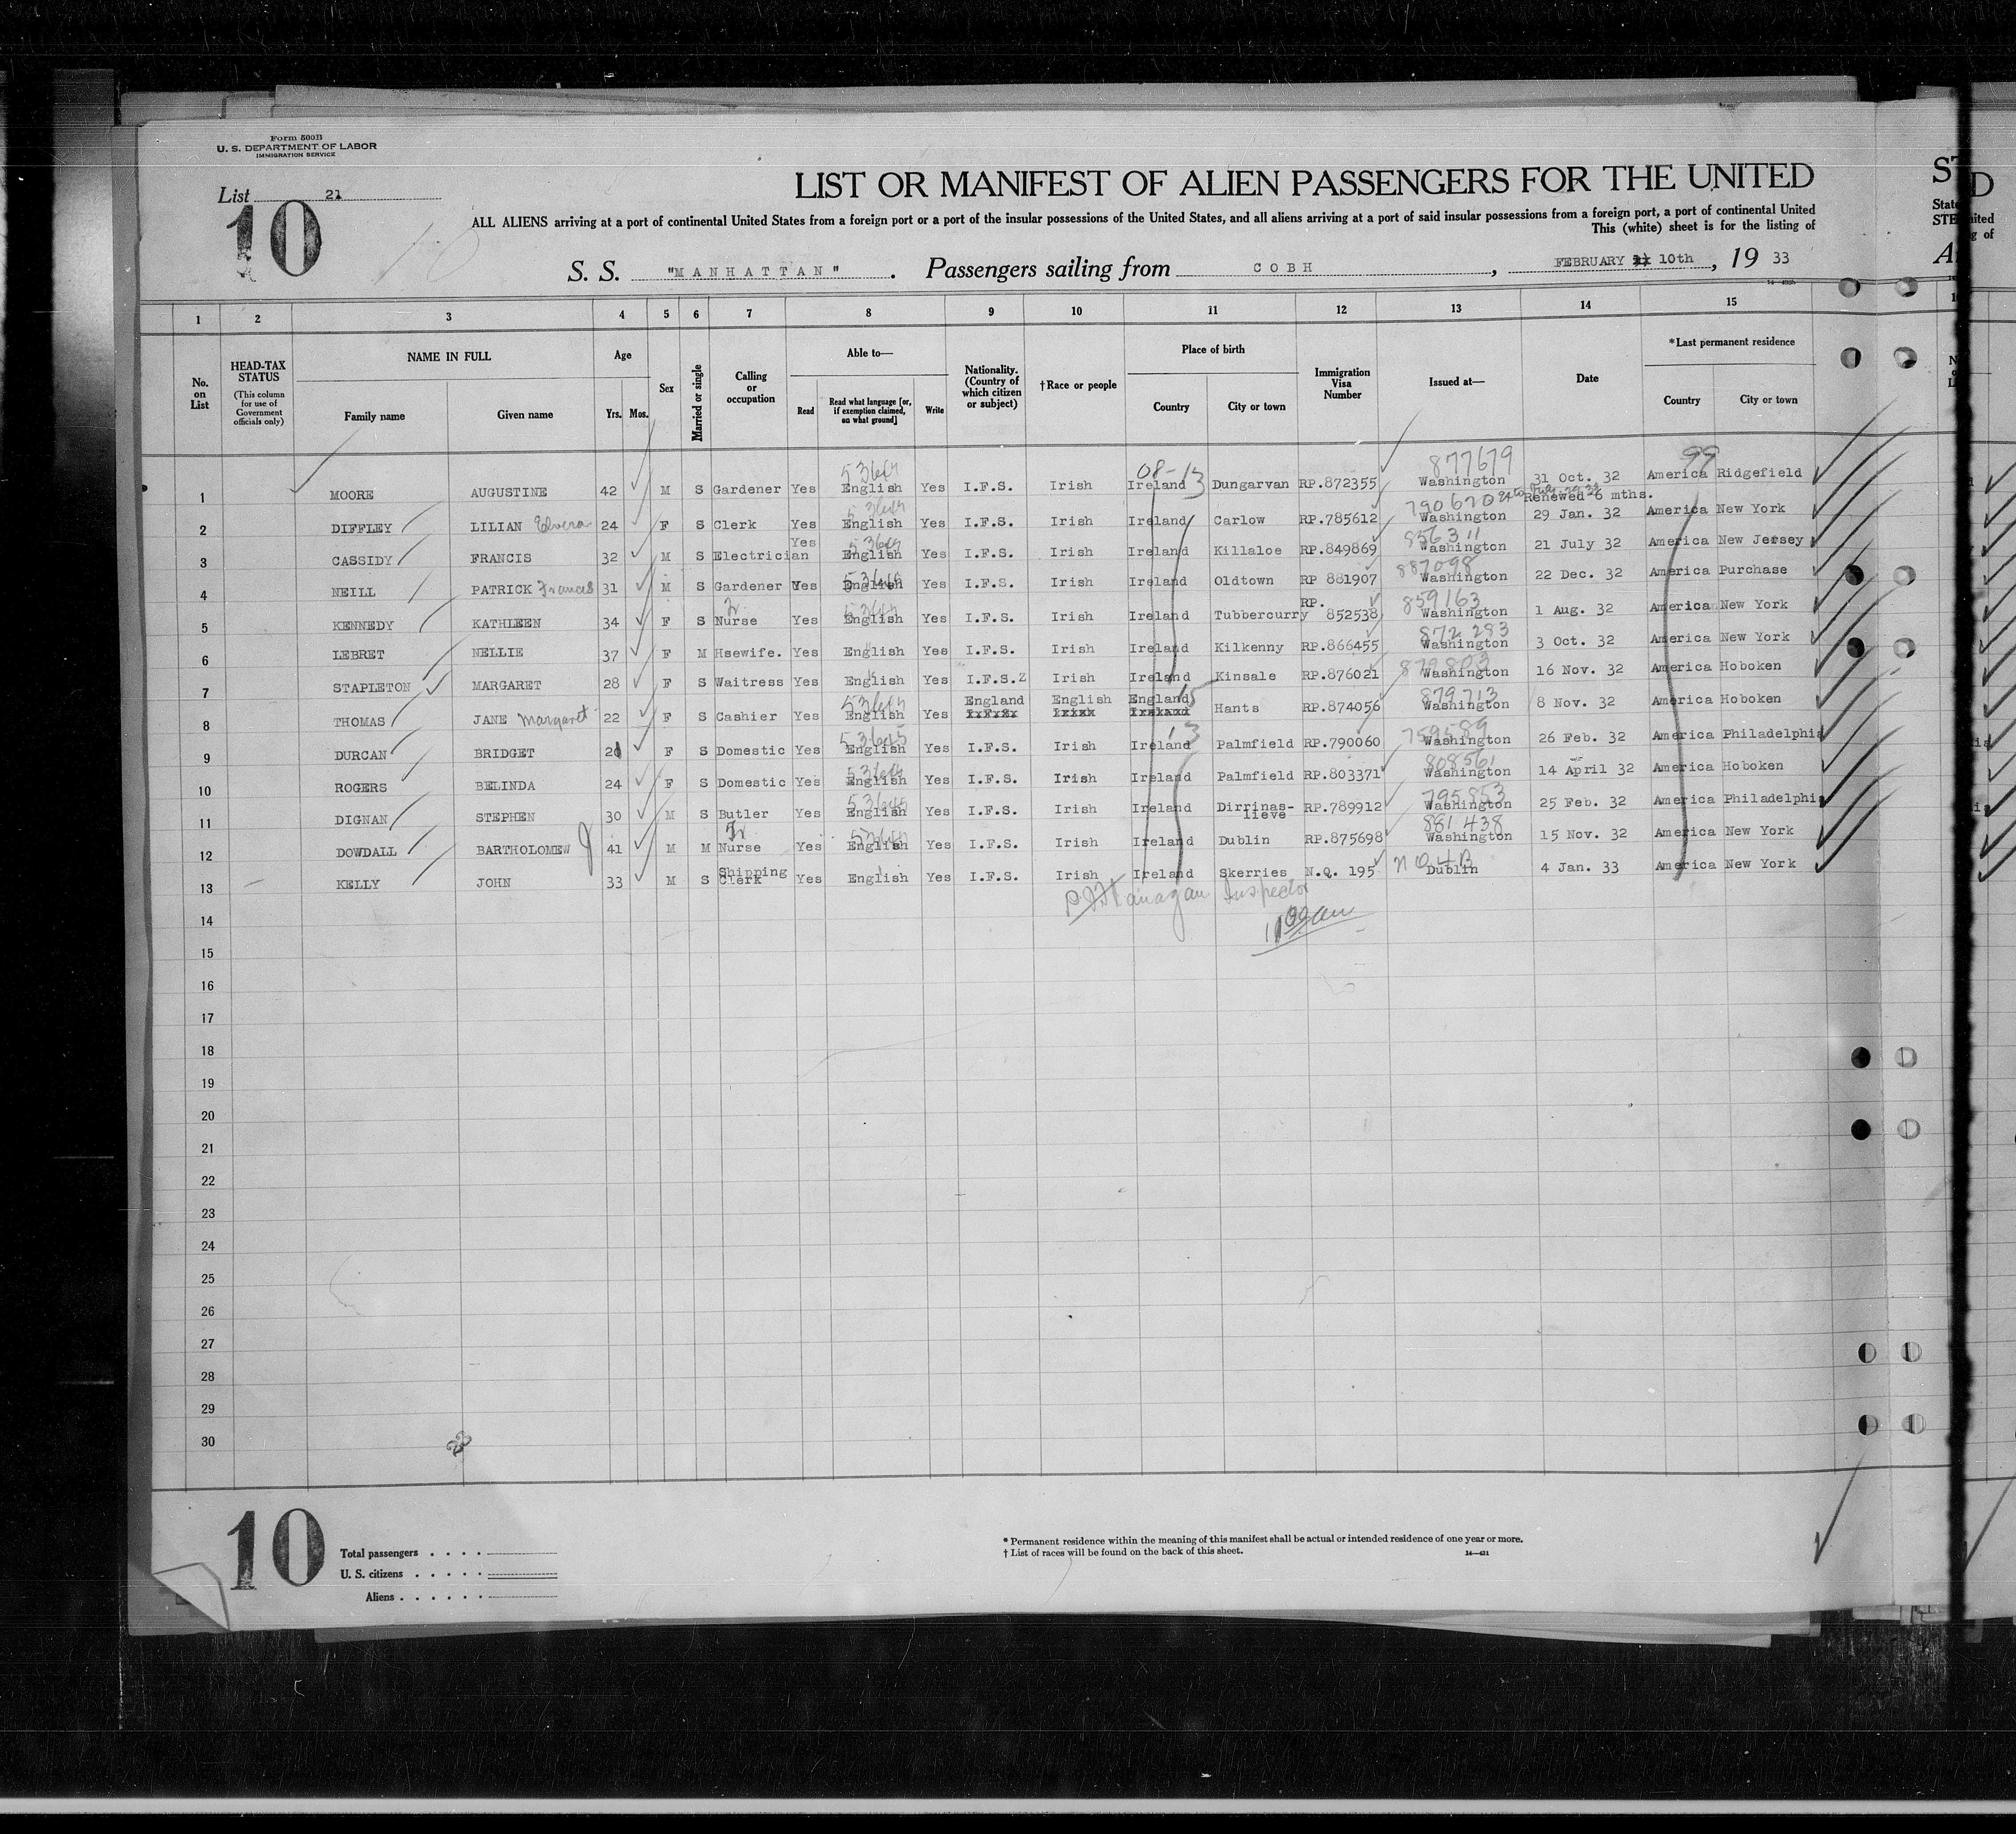 Form 500B
U. S. DEPARTMENT OF LABOR
IMMIGRATION SERVICE
List 21
10
LIST OR MANIFEST OF ALIEN PASSENGERS FOR THE UNITED
ALL ALIENS arriving at a port of continental United States from a foreign port or a port of the insular possessions of the United States, and all aliens arriving at a port of said insular possessions from a foreign port, a port of continental United
This (white) sheet is for the listing of
S. S. "MANHATTAN". Passengers sailing from COBH, FEBRUARY 10th, 19 33
1 2 3 4 5 6 7 8 9 10 11 12 13 14 15
No. on List
HEAD-TAX STATUS (This column for use of Government officials only)
NAME IN FULL Family name Given name
Age Yrs. Mos.
Sex
Married or single
Calling or occupation
Able to— Read Read what language [or, if exemption claimed, on what ground] Write
Nationality. (Country of which citizen or subject)
†Race or people
Place of birth Country City or town
Immigration Visa Number
Issued at—
Date
*Last permanent residence Country City or town
08-13 877679 99
1 MOORE AUGUSTINE 42 M S Gardener Yes English Yes I.F.S. Irish Ireland Dungarvan RP.872355 Washington 31 Oct. 32 America Ridgefield
790670 Renewed 6 mths.
2 DIFFLEY LILIAN Elvera 24 F S Clerk Yes English Yes I.F.S. Irish Ireland Carlow RP.785612 Washington 29 Jan. 32 America New York
856311
3 CASSIDY FRANCIS 32 M S Electrician Yes English Yes I.F.S. Irish Ireland Killaloe RP.849869 Washington 21 July 32 America New Jersey
887098
4 NEILL PATRICK Frances 31 M S Gardener Yes English Yes I.F.S. Irish Ireland Oldtown RP 881907 Washington 22 Dec. 32 America Purchase
859163
5 KENNEDY KATHLEEN 34 F S Tr. Nurse Yes English Yes I.F.S. Irish Ireland Tubbercurry RP. 852538 Washington 1 Aug. 32 America New York
872283
6 LEBRET NELLIE 37 F M Hsewife. Yes English Yes I.F.S. Irish Ireland Kilkenny RP.866455 Washington 3 Oct. 32 America New York
879803
7 STAPLETON MARGARET 28 F S Waitress Yes English Yes I.F.S.Z Irish Ireland Kinsale RP.876021 Washington 16 Nov. 32 America Hoboken
879713
8 THOMAS JANE Margaret 22 F S Cashier Yes English Yes England English England Hants RP.874056 Washington 8 Nov. 32 America Hoboken
759589
9 DURCAN BRIDGET F S Domestic Yes English Yes I.F.S. Irish Ireland Palmfield RP.790060 Washington 26 Feb. 32 America Philadelphia
808561
10 ROGERS BELINDA 24 F S Domestic Yes English Yes I.F.S. Irish Ireland Palmfield RP.803371 Washington 14 April 32 America Hoboken
795853
11 DIGNAN STEPHEN 30 M S Butler Yes English Yes I.F.S. Irish Ireland Dirrinas-lieve RP.789912 Washington 25 Feb. 32 America Philadelphia
881438
12 DOWDALL BARTHOLOMEW J 41 M M Tr. Nurse Yes English Yes I.F.S. Irish Ireland Dublin RP.875698 Washington 15 Nov. 32 America New York
13 KELLY JOHN 33 M S Shipping Clerk Yes English Yes I.F.S. Irish Ireland Skerries N.Q. 195 Dublin 4 Jan. 33 America New York
Flanagan Inspector
14
15
16
17
18
19
20
21
22
23
24
25
26
27
28
29
30
10
Total passengers
U. S. citizens
Aliens
* Permanent residence within the meaning of this manifest shall be actual or intended residence of one year or more.
† List of races will be found on the back of this sheet.